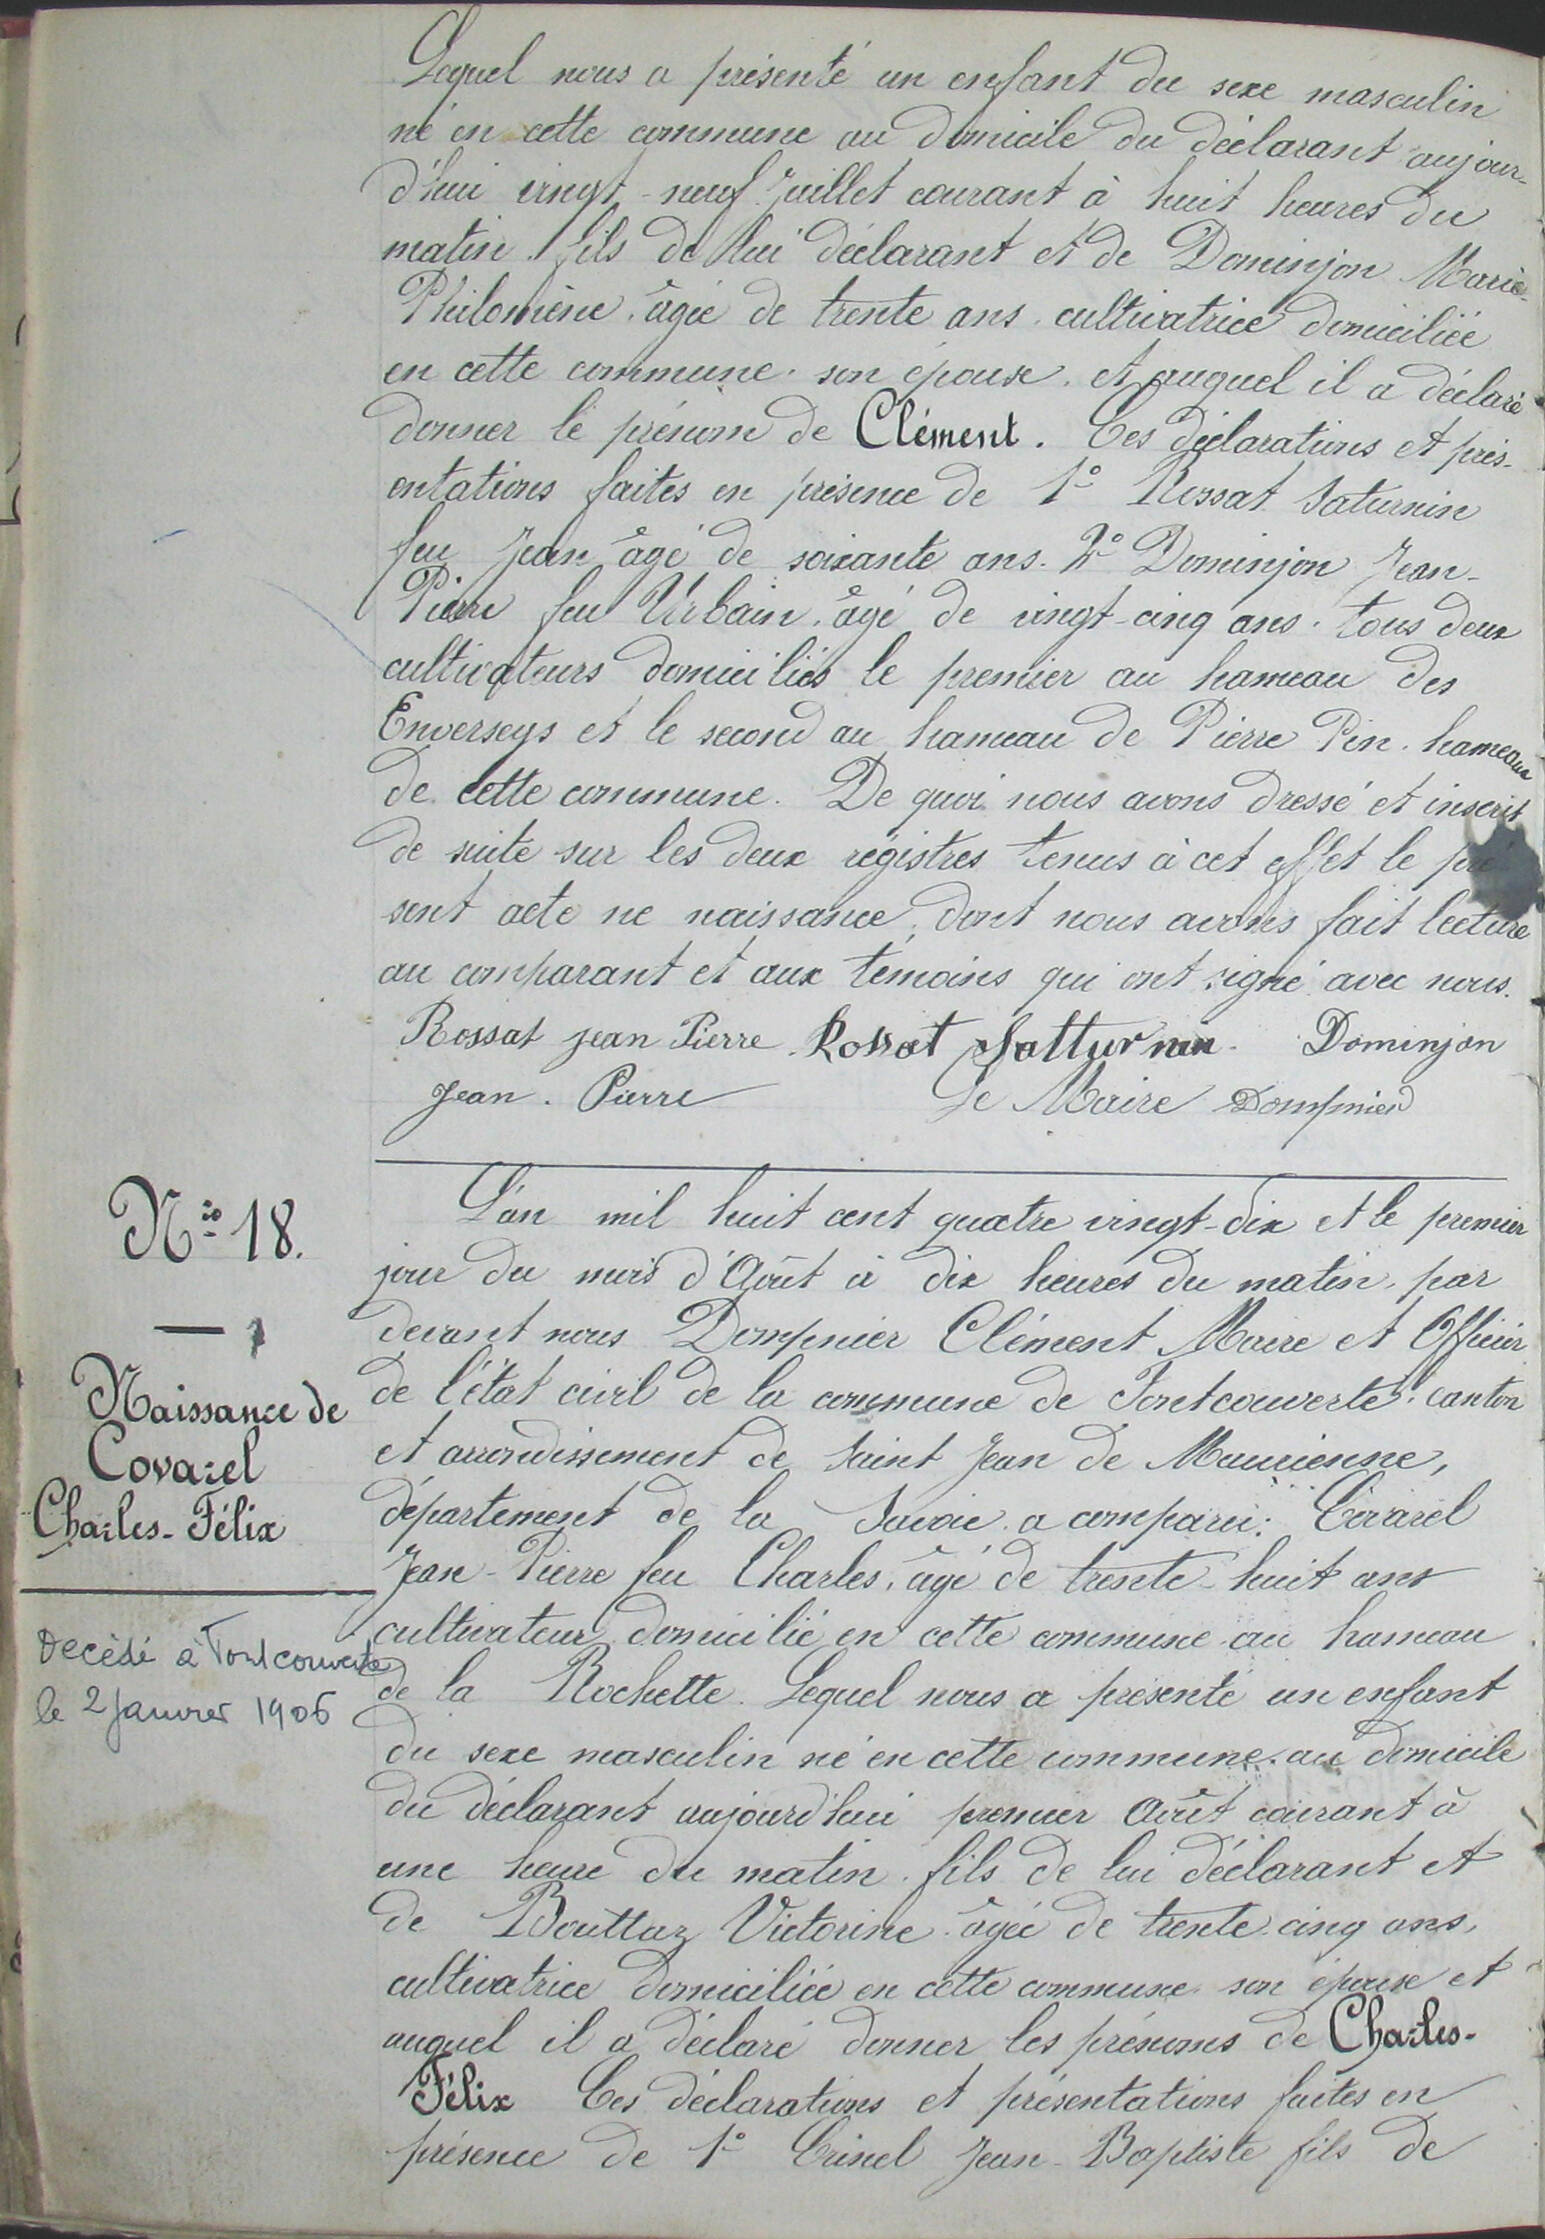 Lequel nous a présenté un enfant du sexe masculin
né en cette commune au domicile du déclarant aujour-
d'hui vingt-neuf Juillet courant à huit heures du
matin. fils de lui déclarant et de Dominjon Marie-
Philomène. âgée de trente ans. cultivatrice domiciliée
en cette commune. son épouse. et auquel il a déclaré
donner le prénom de Clément. Ces déclarations et prés-
entations faites en présence de 1º Rossat Saturnin
feu Jean âgé de soixante ans. 2º Dominjon Jean-
Pierre feu Urbain. âgé de vingt-cinq ans. tous deux
cultivateurs domiciliés le premier au hameau des
Enverseys et le second au hameau de Pierre Pin. hameaux
de cette commune. De quoi nous avons dressé et inscrit
de suite sur les deux régistres tenus à cet effet le pré
sent acte ne naissance. dont nous avons fait lecture
au comparant et aux témoins qui ont signé avec nous.
Rossat Jean Pierre. Rossat Satturnin. Dominjon
Jean. Pierre Le Maire Dompnier
Nº 18.
Naissance de
Covarel
Charles-Félix
Decédé à Fontcouverte
le 2 Janvier 1906
L'an mil huit cent quatre vingt-dix et le premier
jour du mois d'Août à dix heures du matin. par
devant nous Dompnier Clément Maire et Officier
de l'état civil de la commune de Fontcouverte. canton
et arrondissement de Saint Jean de Maurienne,
département de la Savoie. a comparu: Covarel
Jean-Pierre feu Charles. âgé de trente-huit ans
cultivateur domicilié en cette commune au hameau
de la Rochette. Lequel nous a présenté un enfant
du sexe masculin né en cette commune. au domicile
du déclarant aujourd'hui premier Août courant à
une heure du matin. fils de lui déclarant et
de Bouttaz Victorine. âgée de trente-cinq ans.
cultivatrice domiciliée en cette commune. son épouse et
auquel il a déclaré donner les prénoms de Charles-
Félix Ces déclarations et présentations faites en
présence de 1º Crinel Jean-Baptiste fils de